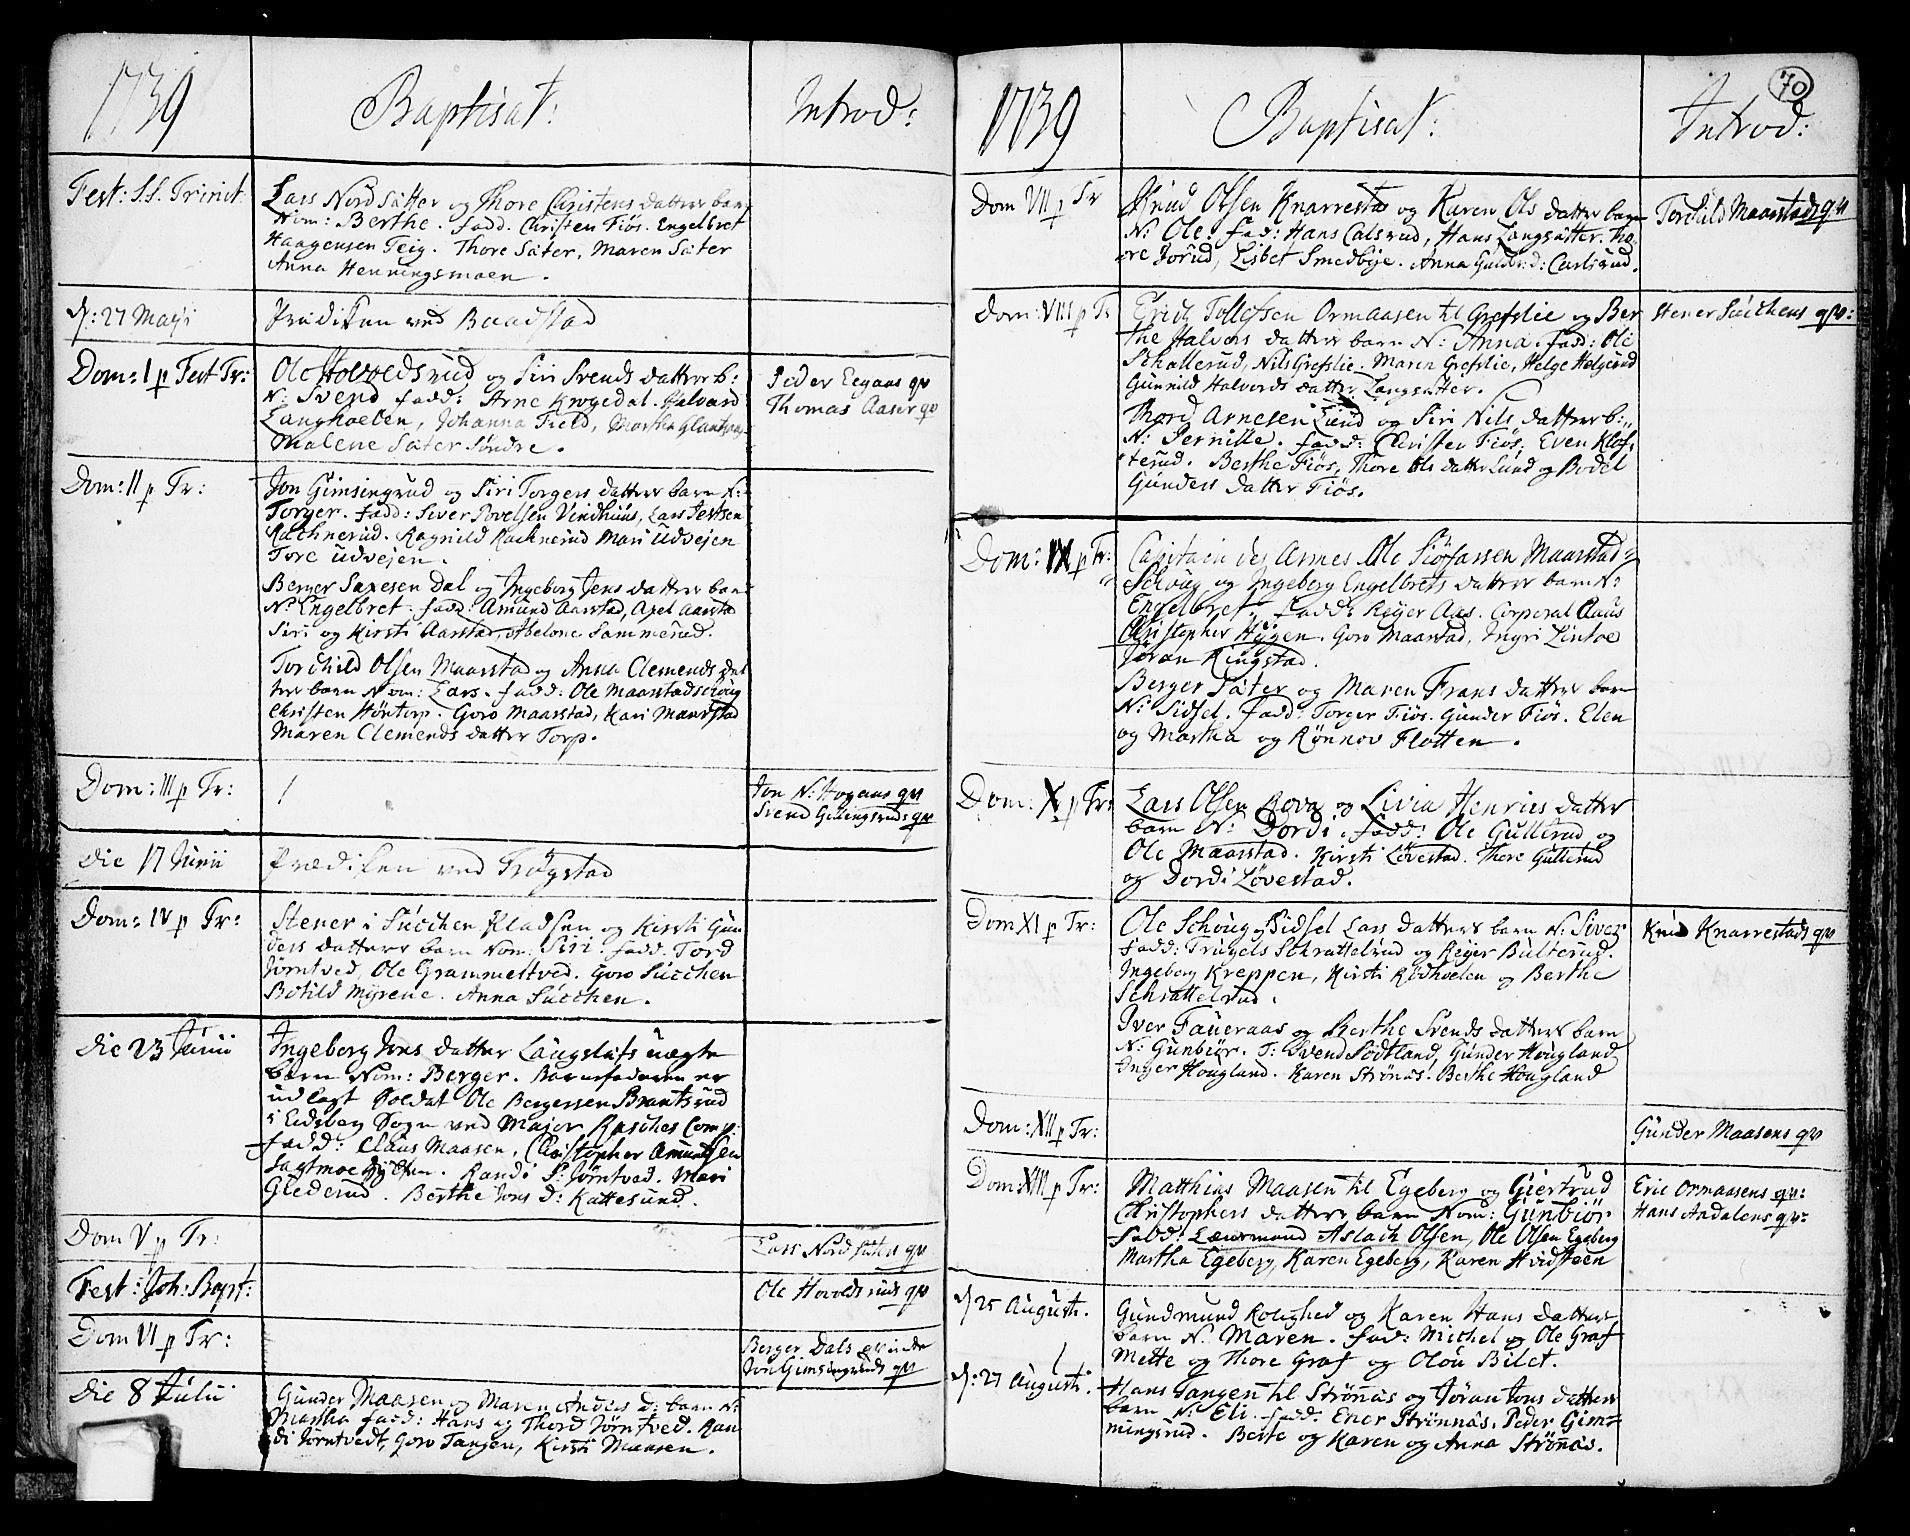 1739 Baptisat: Introd:
Fest: S.S. Trinit: Lars Nordsäter og Thore Christens datter barn
Nom: Berthe. fadd. Christen Fiös. Engelbret
Haagensen Teig. Thore Säter, Maren Säter
Anna Henningsmoen.
d: 27 Maji Prædiken ved Baadstad
Dom: I p Fest Tr: Ole Hovoldsrud og Siri Svends datter b: Peder Eegaas qv
N: Svend fadd: Arne Krogedal. Halvard Thomas Aaser qv
Langhoelen, Johanna Field, Marthe
Malene Säter Söndre.
Dom: II p Tr: Jon Gimsingrud og Siri Torgers datter barn N:
Torger. fadd: Siver Povelsen Vindhuus, Lars Jensen
Kachnerud. Ragnild Kachnerud Mari Udvejen
Tore Udvejen.
Berger Saxesen Dal og Ingeborg Jens datter barn
N: Engelbret. fadd: Amund Aarstad, Axel Aarstad
Siri og Kirsti Aarstad, Abelone Sammerud.
Torchild Olsen Maarstad og Anna Clemends dat
ter barn Nom: Lars. fadd: Ole Maarstadschoug
Christen Höntorp. Goro Maarstad, Kari Maarstad
Maren Clemends datter Torp.
Dom: III p Tr: / Jon N: Hogaas qv
Svend Gillingsruds qv
Die 17 Junii Prædiken ved Trögstad
Dom: IV p Tr: Stener i Succhen Pladsen og Kirsti Gun
ders datters barn Nom: Siri. fadd: Tord
Jörntved, Ole Grammeltved. Goro Succhen
Botild Myrene. Anna Succhen.
Die 23 Junii Ingeborg Jons datter Langslets uægte
barn Nom: Berger. Barnefaderen er
udlagt Soldat Ole Bergersen Brantsrud
i Eidsberg Sogn ved Major Rasches Comp:
fadd: Claus Maasen, Christopher Amundsen
Randi S: Jörntved. Mari
Glederud. Berthe Jons d: Kattesund.
Dom V p Tr: Lars Nordsäters qv
Fest: Joh: Bapt: Ole Hovoldsruds qv
Dom VI p Tr: Berger Dals qvinde
Jon Gimsingruds qv
Die 8 Julii Gunder Maasen og Maren Anders d: barn N:
Martha fadd: Hans og Thord Jörntved. Ran
di Jörntvedt, Goro Tangen, Kirsti Maasen.
70
1739 Baptisat: Introd:
Dom VII p Tr Knud Olsen Knarrestad og Karen Ols datter barn Torchild Maarstads qv
N: Ole. fad: Hans Calsrud, Hans Langsäter. Tho
re Jorud, Lisbet Smedbye. Anna Guldb: d: Carlsrud.
Dom: VIII p Tr Erich Tollefsen Ormaasen til Grefslie og Ber Stener Succhens qv:
the Halvors datters barn N: Anna. fadd: Ole
Schallerud, Nils Grefslie. Maren Grefslie, Helge Helgerud
Gunnild Halvords datter Langsäter.
Thord Arnesen Lund og Siri Nils datter b:
N: Pernille. fadd: Christen Fiös. Even Klos
terud. Berthe Fiös, Thore Ols datter Lund og Bodel
Gunders datter Fiös.
Dom: IX p Tr: Capitain des Armes Ole Siöfarsen Maarstad
Schoug og Ingeberg Engelbrets datter barn N:
Engelbret. fadd: Reyer Aas. Corporal Claus
Christopher Hygen. Goro Maarstad, Ingri Lintoe
Jöran Ringstad.
Berger Säter og Maren Frans datter barn
N: Sidsel. fadd: Torger Fiös. Gunder Fiös. Elen
og Martha og Rönnov Flotten.
Dom: X p Tr: Lars Olsen Rova og Livia Henrics datter
barn N: Dordi. fadd: Ole Gullerud og
Ole Maarstad. Kirsti Lövestad. Thore Gullerud
og Dordi Lövestad.
Dom XI p Tr: Ole Schoug og Sidsel Lars datters barn N: Siver Knud Knarrestads qv
fadd: Trugels Schrattelrud og Reyer Bulterud.
Ingeberg Kreppen, Kirsti Rödhoelen og Berthe
Schrattelrud.
Iver Faueraas og Berthe Svends datters barn
N: Gunbiör. F: Svend Södtland, Gunder Hougland
Inger Hougland. Karen Strönäs. Berthe Hougland
Dom: XII p Tr: Gunder Maasens qv
Dom: XIII p Tr: Matthias Maasen til Egeberg og Giertrud Eric Ormaasens qv:
Christophers datters barn Nom: Gunbiör Hans Aadalens qv:
fadd: Lænsmand Aslach Olsen, Ole Olsen Egeberg
Martha Egeberg, Karen Egeberg, Karen Hvidsteen
d: 25 Augusti. Gundmund Rolighed og Karen Hans datters
barn N: Maren. fad: Michel og Ole Graf
Mette og Thore Graf og Olou Bilet.
d: 27 Augusti Hans Tangen til Strönäs og Jöran Jons datters
barn N: Eli. fadd: Ener Strönnäs. Peder Gim
mingsrud. Berte og Karen og Anna Strönäs.